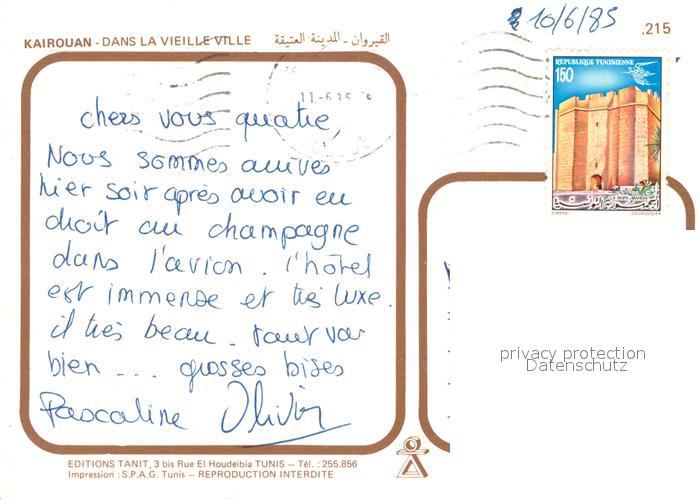 10/6/85
.215
KAIROUAN - DANS LA VIEILLE VILLE القيروان - المدينة العتيقة
REPUBLIQUE TUNISIENNE
150
11-6.85
chers vous quatre,
Nous sommes arrivés
hier soir après avoir eu
droit au champagne
dans l'avion. l'hôtel
est immense et très luxe.
il très beau. tout va
bien ... grosses bises
Pascaline Olivier
privacy protection
Datenschutz
EDITIONS TANIT, 3 bis Rue El Houdeibia TUNIS - Tél. : 255.856
Impression : S.P.A.G. Tunis - REPRODUCTION INTERDITE